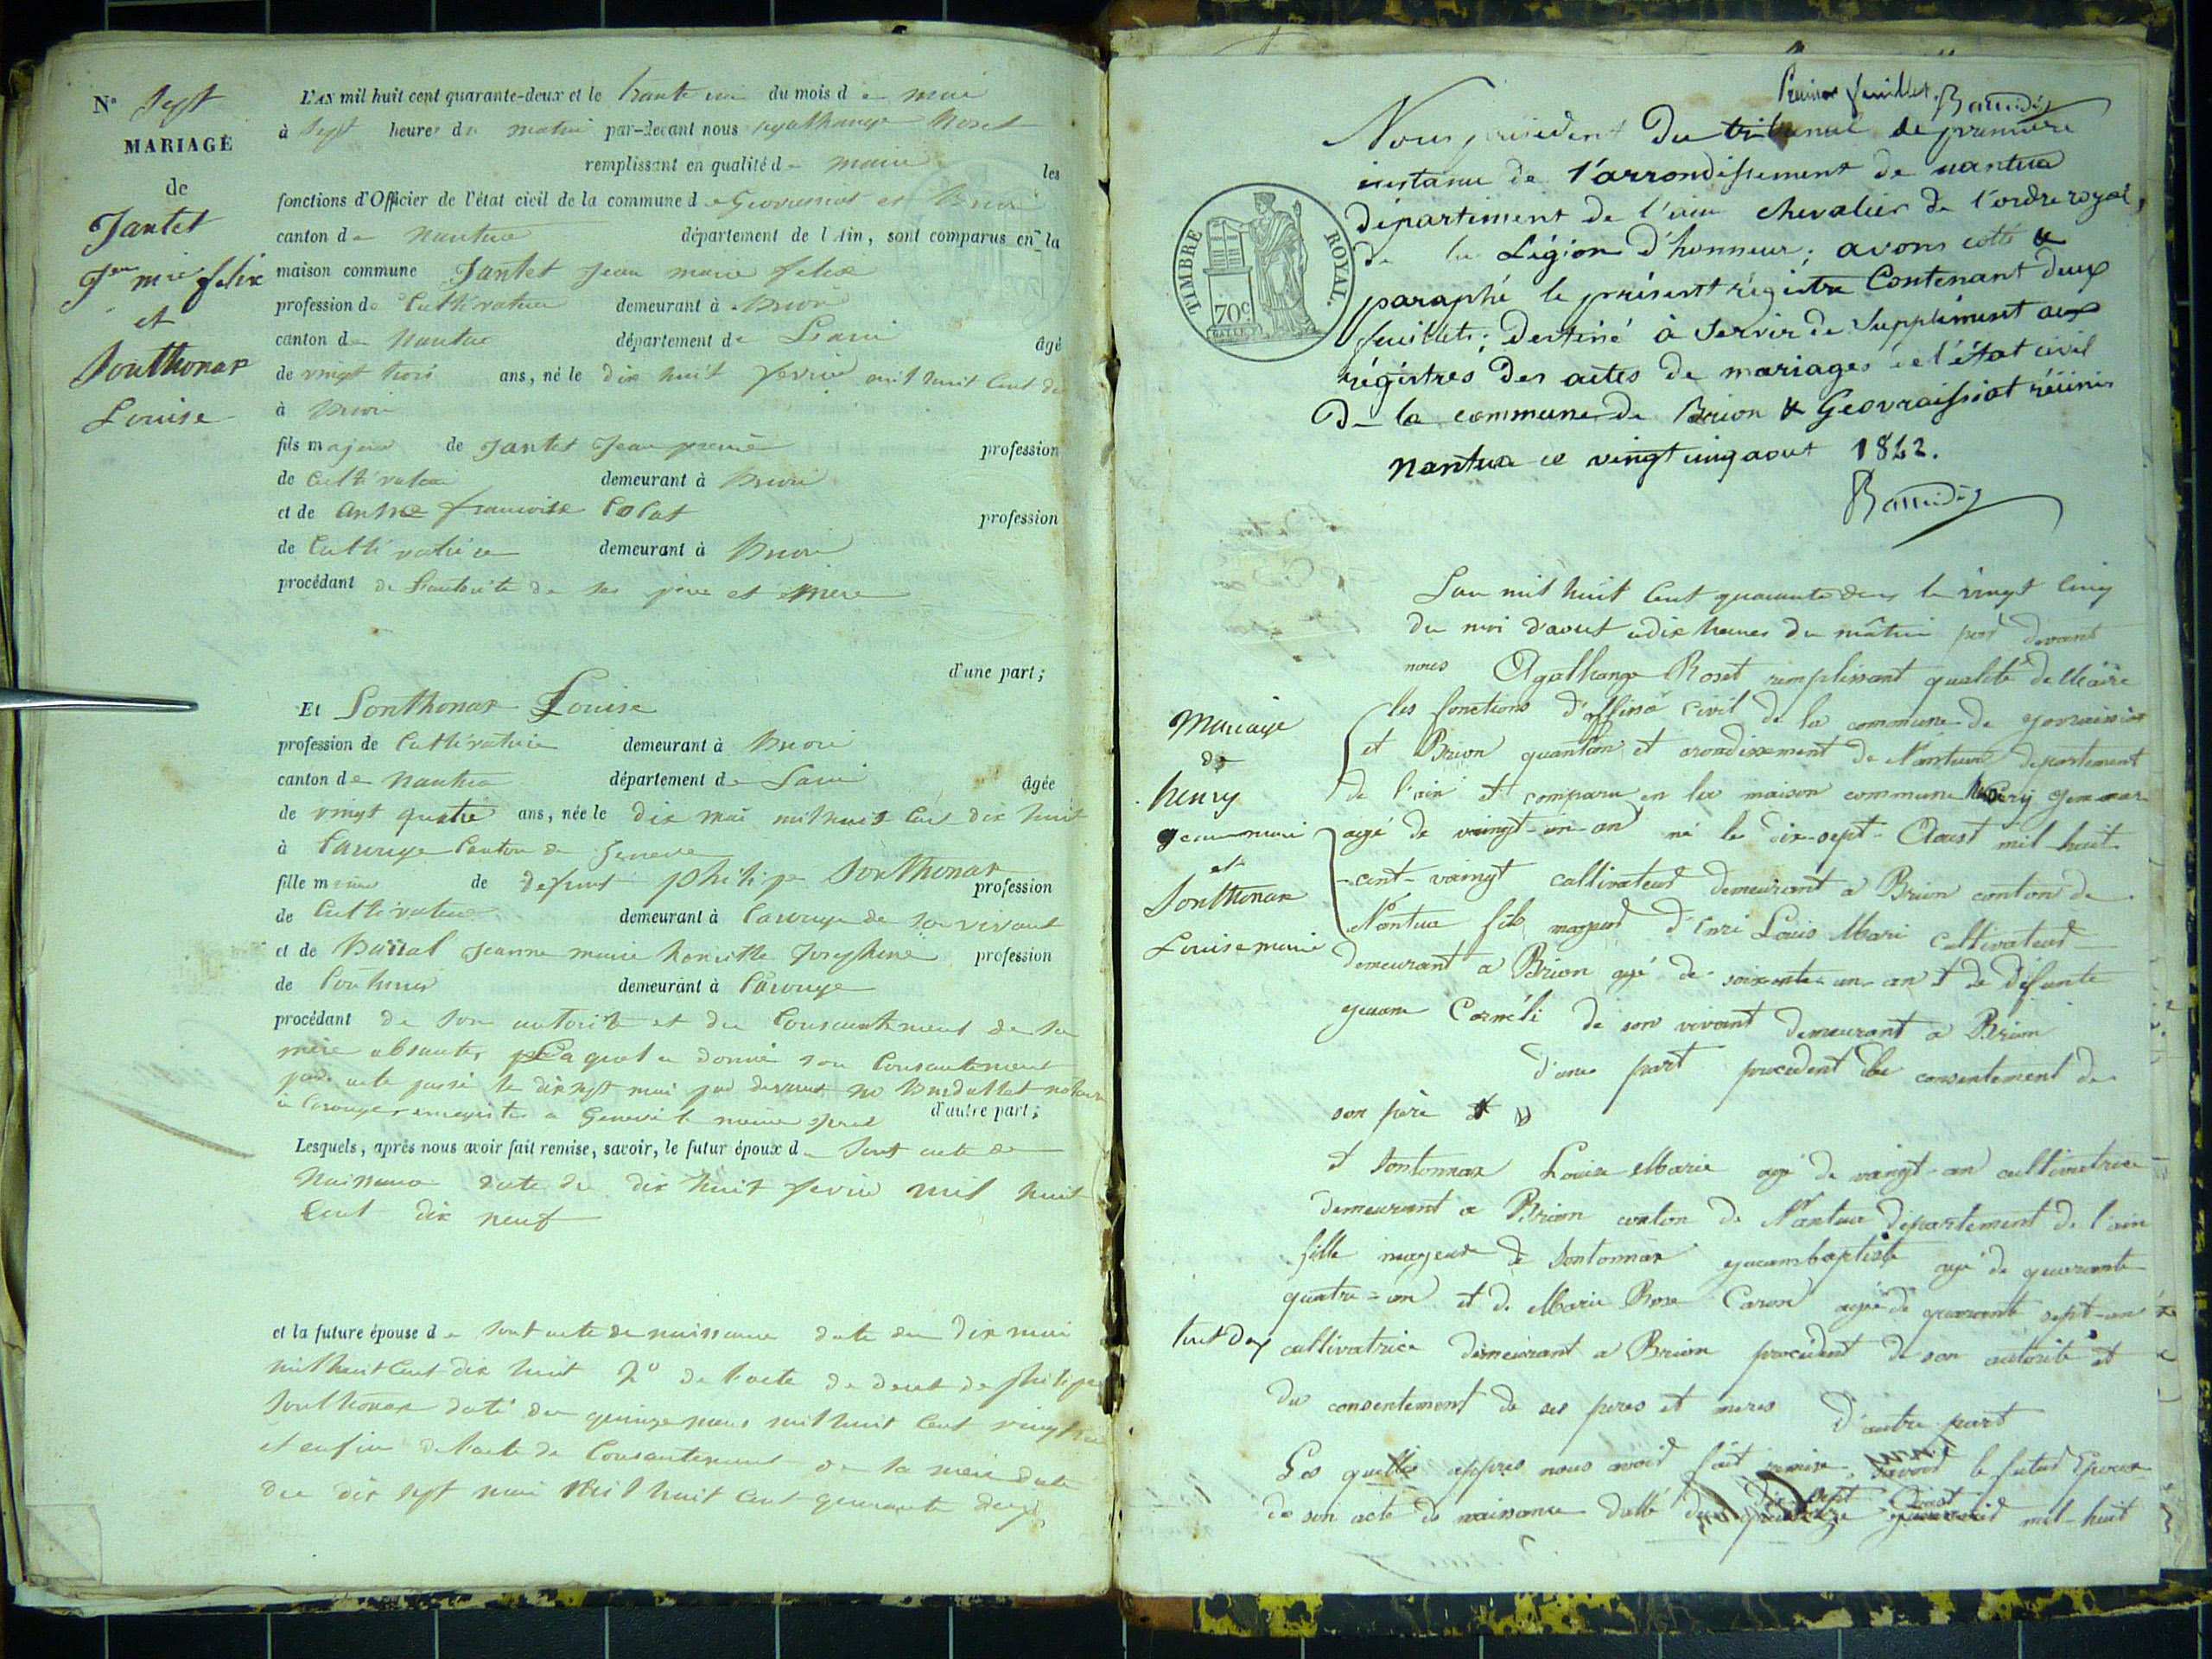 N° Sept
MARIAGE
de
Jantet
Jean mie felix
et
Sonthonax
Louise
L'AN mil huit cent quarante-deux et le trante un du mois de mai
à Sept heures du matin par-devant nous agathange Roset
remplissant en qualité de maire les
fonctions d'Officier de l'état civil de la commune de Geovreissiat et Brion
canton de nantua département de l'Ain, sont comparus en la
maison commune Jantet Jean marie felix
profession de Cultivateur demeurant à Brion
canton de Nantua département de Lain âgé
de vingt trois ans, né le dix huit fevrie mil huit Cent dix
à Brion
fils majeur de Jantet Jean pierre profession
de Cultivateur demeurant à Brion
et de françoise Colat profession
de Cultivatrice demeurant à Brion
procédant de Lautorite de ses père et mere
d'une part;
Et Sonthonax Louise
profession de Cultivatrice demeurant à Brion
canton de Nantua département de Lain âgée
de vingt quatre ans, née le dix mai mil huit Cent dix huit
à Carouge Canton de Geneve
fille m de defunt philipe Sonthonax profession
de Cultivateur demeurant à Carouge de son vivant
et de Jeanne marie henriette Josephine profession
de demeurant à Carouge
procédant de son autorité et du Consantement de sa
mère absante, Laquel a donné son Consantement
par acte passé le dix sept mai par devant notaire
à Carouge enregistre a Genève le meme jour d'autre part;
Lesquels, après nous avoir fait remise, savoir, le futur époux de Sont acte de
Naissance date du dix huit fevrie mil huit
Cent dix neuf
et la future épouse de Sont acte de naissance date du dix mai
mil huit Cent dix huit 2° de l'acte de deces de philipe
Sonthonax daté du quinze mars mil huit Cent vingt
et enfin de l'acte de Consantement de sa mere date
du dix sept mai mil huit Cent quarante deux
Premier feuillet.
Nous président du tribunal de première
instance de l'arrondissement de nantua
département de l'ain chevalier de l'ordre royal
de la Légion d'honneur; avons coté &
paraphé le présent régistre Contenant deux
feuillets; destiné à Servir de Supplément aux
régistres des actes de mariages de l'état civil
de la commune de Brion & Geovraissiat réunis
nantua ce vingt cinq aout 1842.
TIMBRE ROYAL.
70c
Lan mil huit Cent quarante deux le vingt Cinq
du moi d'aout a dix heures du mâtin par devant
nous Agathange Roset remplissant qualité de Maire
les fonctions d'offisié civil de la commune de
et Brion quantôn et arondissement de Nantua departement
de l'ain et comparu en la maison commune henry
agé de vaingt-un-an né le dix-sept Aoust mil-huit-
-cent-vaingt cultivateur demeurant a Brion conton de
Nantua fils majeur d'enri Louis Mari cultivateur
demeurant a Brion agé de soixante-un-an et de défunte
Cornéli de son vivant demeurant a Brion
d'une part procedent du consentement de
son père
Mariage
de
henry
jeanmari
et
Sonthonax
Louise marie
et Sontonnax Louise Marie agé de vaingt-an cultivatrice
demeurant a Brion conton de Nantua département de l'ain
fille mageur de Sontonnax agé de quarante
quatre-an et de Marie Rose Caron agée de quarante sept-an
cultivatrice demeurant a Brion procedent de son autorite et
du consentement de ses peres et meres d'autre part
Les quelles appres nous avoir fait remise, savoir le futur Epoux
de son acte de naissance datté du dix-sept Aoust mil-huit